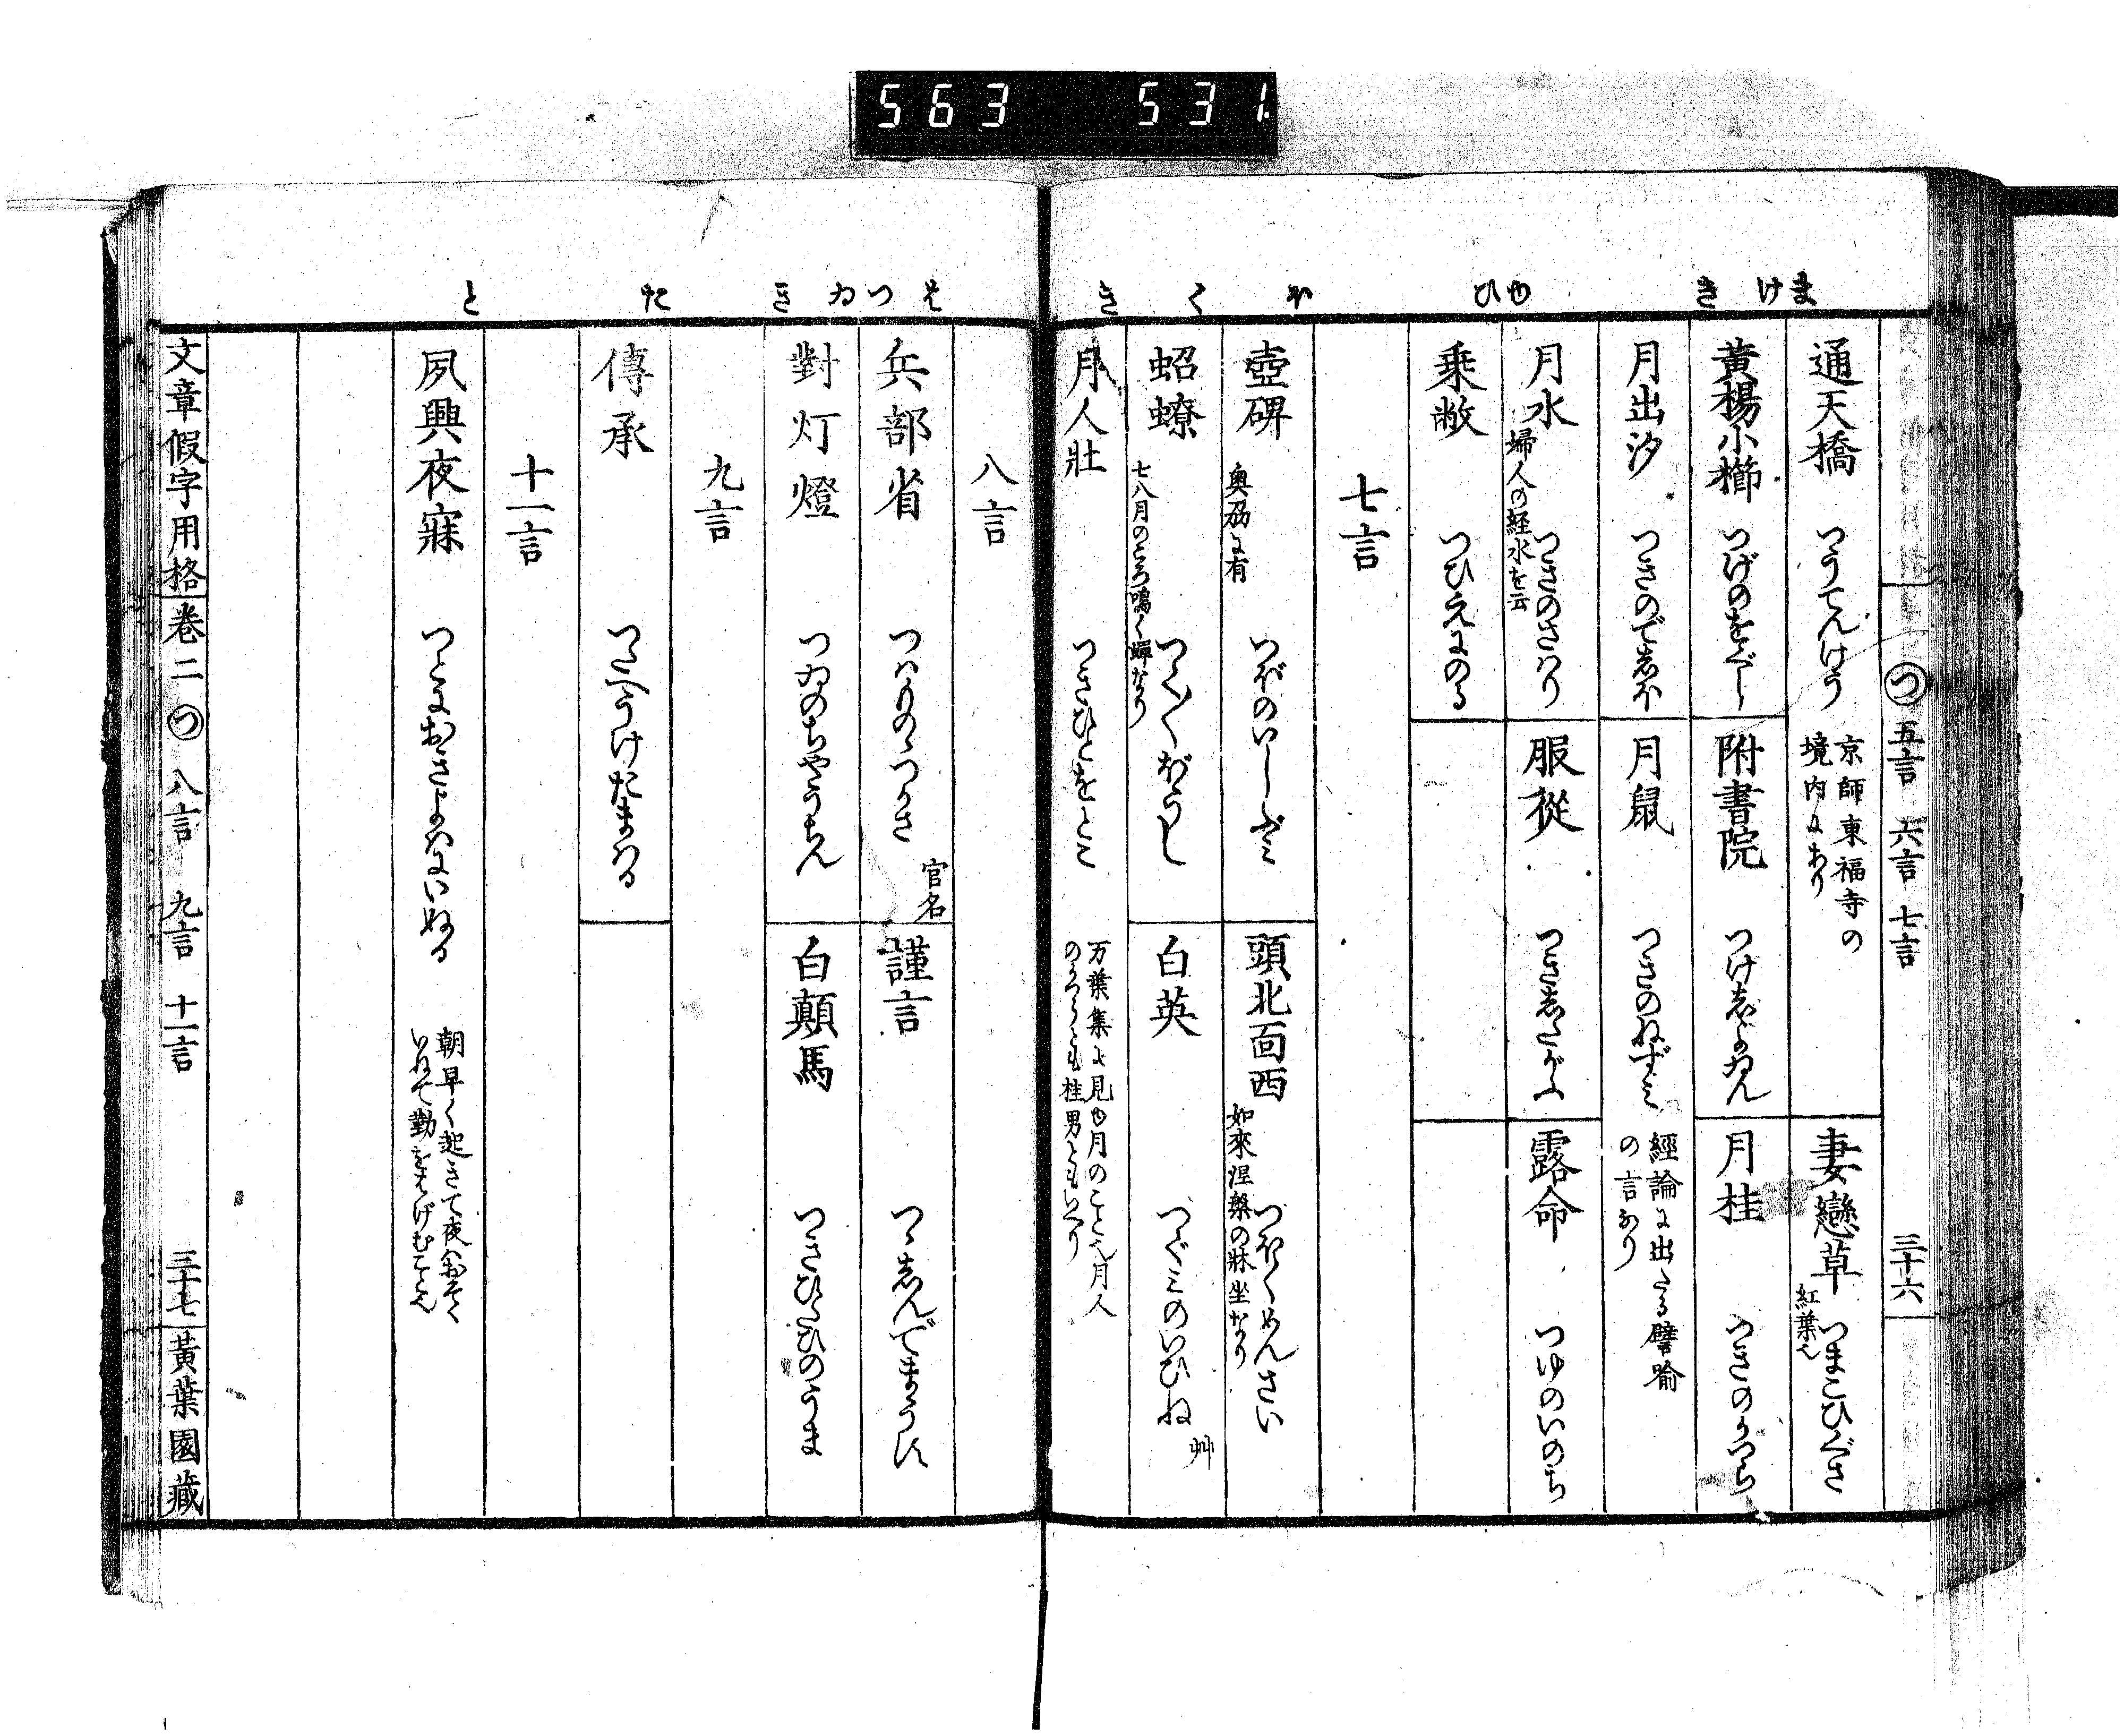 563 531
まけ き ゆひ や く き
つ 五言 六言 七言 三十六
通天橋 つうてんけう 京師東福寺の
境内にあり
妻戀草 つまこひぐさ 紅葉也
黄楊小櫛 つげのをぐし
附書院 つけしよゐん
月桂 つきのかつら
月出汐 つきのでしほ
月鼠 つきのねずミ 經論に出たる譬喩
の言なり
月水 つきのさハり 婦人の経水を云
服從 つきしたがふ
露命 つゆのいのち
乗敝 つひえにのる
七言
壺碑 つぼのいしぶミ 奥刕に有
頭北面西 つほくめんさい 如來涅槃の牀坐なり
蛁蟟 つく〳〵ぼうし 七八月のころ鳴く蟬なり
白英 つぐミのいひね 艸
月人壮 つきひとをとこ 万葉集に見ゆ月のこと也月人
のかつらとも桂男ともいへり
つゐ き た と
八言
兵部省 つハものゝつかさ 官名
謹言 つゝしんでまうす
對灯燈 つゐのちやうちん
白顛馬 つきひたひのうま
九言
傳承 つたへうけたまハる
十一言
夙興夜寐 つとにおきよハにいぬる 朝早く起きて夜ハおそく
いねて勤をはげむこと也
文章假字用格 卷二 つ 八言 九言 十一言 三十七 黄葉園藏